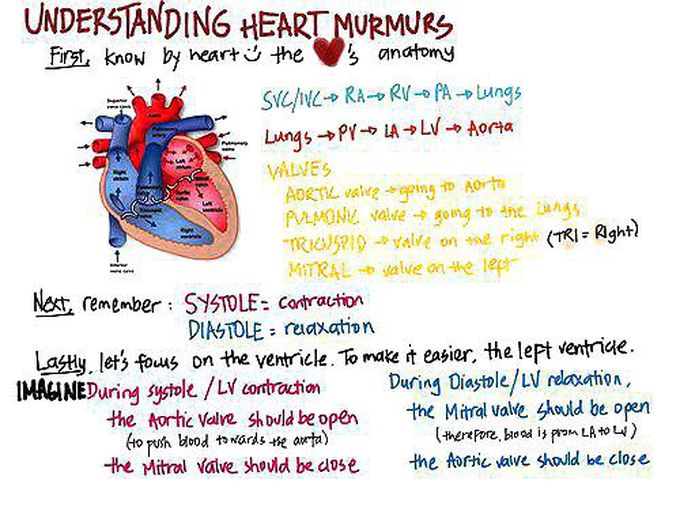 UNDERSTANDING HEART MURMURS
First, know by heart the 's anatomy
SVC/IVC → RA → RV → PA → Lungs
Lungs → PV → LA → LV → Aorta
VALVES
AORTIC valve → going to Aorta
PULMONIC valve → going to the Lungs
TRICUSPID → valve on the right (TRI = RIght)
MITRAL → valve on the left
Superior vena cava
Aorta
Pulmonary artery
Pulmonary vein
Left atrium
Right atrium
Mitral valve
Aortic valve
Pulmonary valve
Tricuspid valve
Left ventricle
Right ventricle
Inferior vena cava
Next, remember: SYSTOLE = contraction
DIASTOLE = relaxation
Lastly, let's focus on the ventricle. To make it easier, the left ventricle.
IMAGINE During systole / LV contraction
the Aortic valve should be open
(to push blood towards the aorta)
the Mitral valve should be close
During Diastole/LV relaxation,
the Mitral valve should be open
(therefore, blood is from LA to LV)
the Aortic valve should be close